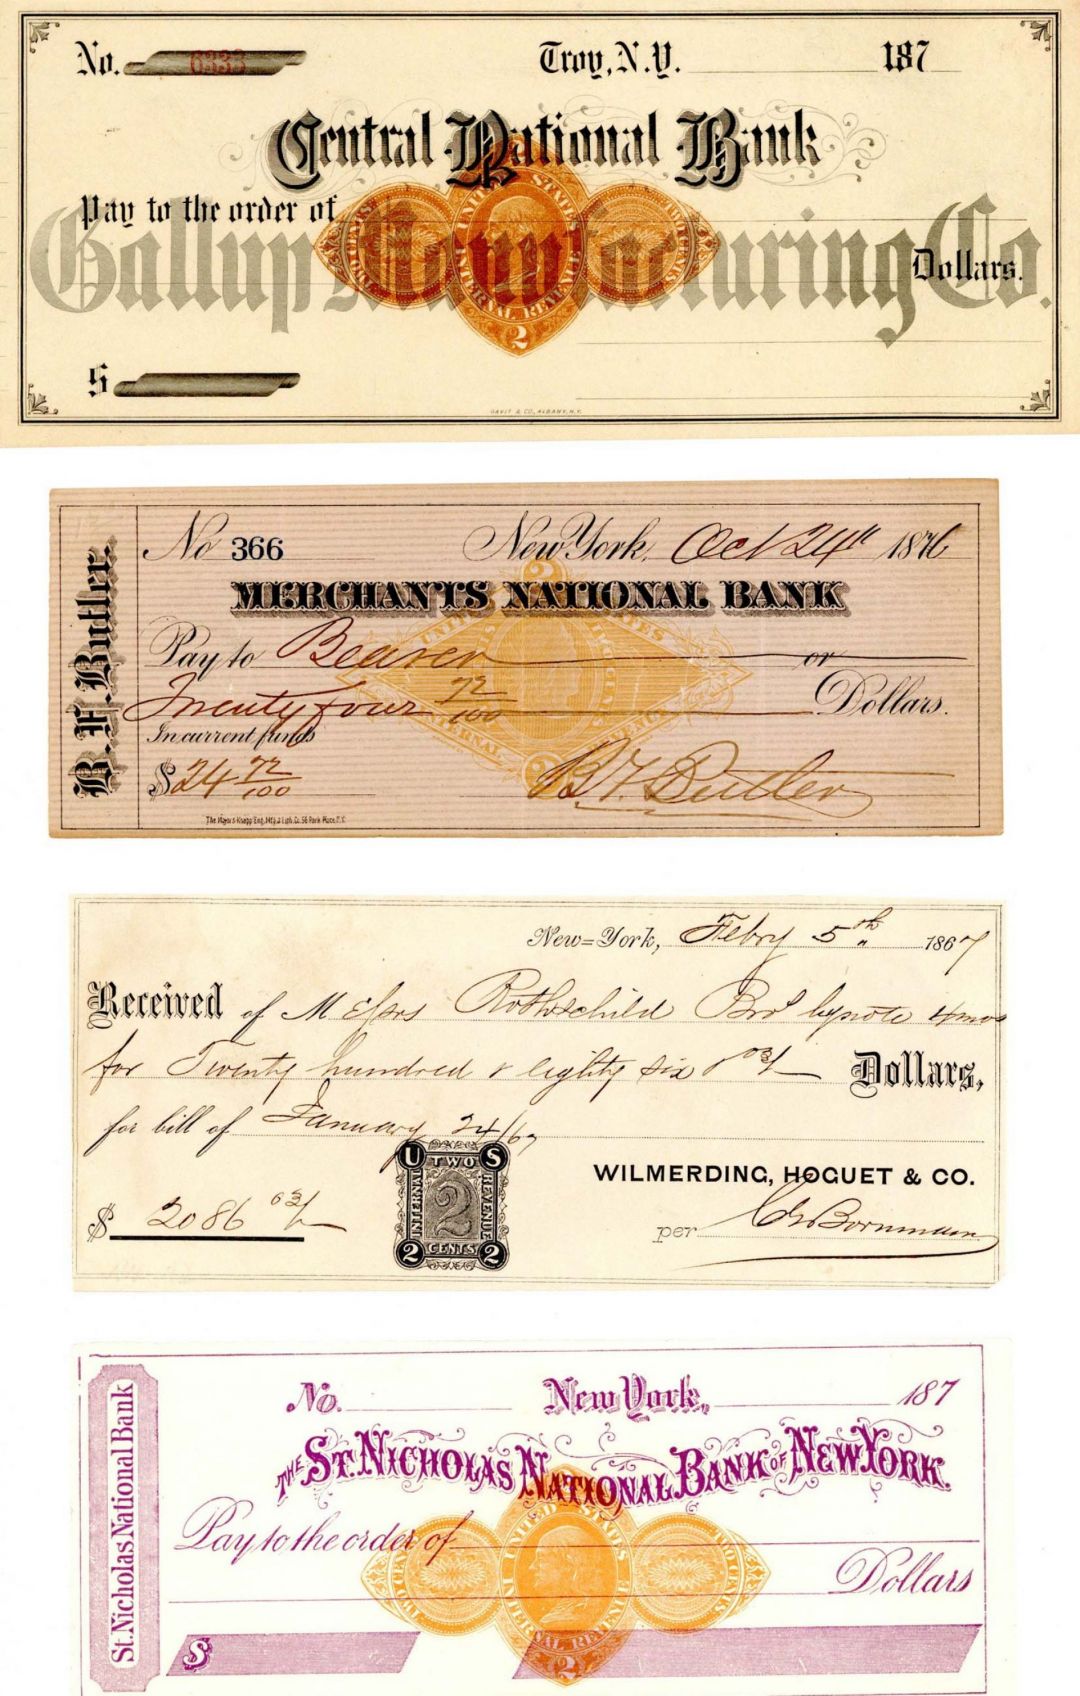 No. 6333 Troy, N.Y. 187
Central National Bank
Pay to the order of
Gallup Manufacturing Co.
Dollars.
UNITED STATES
TWO CENTS TWO CENTS
INTERNAL REVENUE
2
$
GAVIT & CO., ALBANY, N.Y.
B. F. Butler.
No 366 New York, Oct 24th 1876
MERCHANTS NATIONAL BANK
Pay to Bearer or
Twenty four 72/100 Dollars.
In current funds
$24 72/100 B. F. Butler
UNITED STATES
TWO CENTS
INTERNAL REVENUE
2
2
The Mayor & Knapp Eng. Mfg & Lith. Co. 56 Park Place N.Y.
New=York, Febry 5th 1867
Received of Messrs Rothschild Bros by note 4 mos
for Twenty hundred & eighty six 03/ Dollars,
for bill of January 24/67
U S
TWO
INTERNAL 2 REVENUE
CENTS
2 2
WILMERDING, HOGUET & CO.
$ 2086 03/ per
St. Nicholas National Bank
No. New York, 187
THE ST. NICHOLAS NATIONAL BANK OF NEW YORK.
Pay to the order of
Dollars
UNITED STATES
TWO CENTS TWO CENTS
INTERNAL REVENUE
2
$